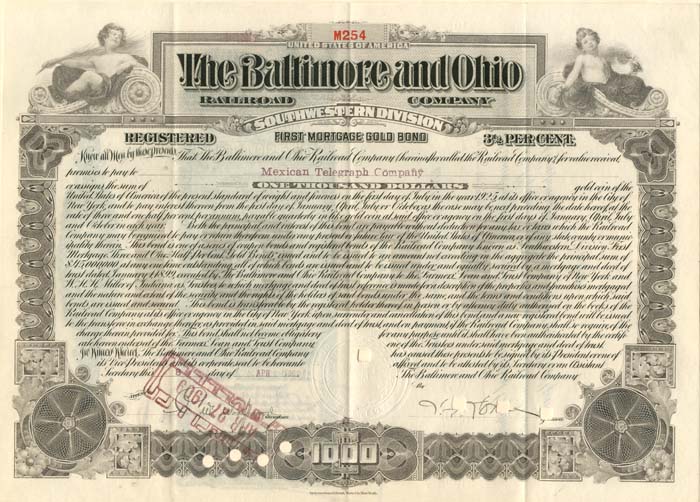 M254
UNITED STATES OF AMERICA
The Baltimore and Ohio
RAILROAD COMPANY
SOUTHWESTERN DIVISION
REGISTERED FIRST MORTGAGE GOLD BOND 3½ PER CENT.
Know all Men by these presents, That the Baltimore and Ohio Railroad Company (hereinafter called the Railroad Company) for value received,
promises to pay to Mexican Telegraph Company
or assigns, the sum of ONE THOUSAND DOLLARS gold coin of the
United States of America of the present standard of weight and fineness on the first day of July in the year 1925 at its office or agency in the City of
New York, and to pay interest thereon, from the first day of January, April, July or October as the case may be next preceding the date hereof at the
rate of three and one half per cent per annum, payable quarterly in like gold coin at said office or agency on the first days of January, April, July
and October in each year. Both the principal and interest of this bond are payable without deduction for any tax or taxes which the Railroad
Company may be required to pay or retain therefrom under any present or future law of the United States of America, or of any state, county or muni-
cipality therein. This bond is one of a series of coupon bonds and registered bonds of the Railroad Company known as its Southwestern Division First
Mortgage Three and One Half Per Cent Gold Bonds issued and to be issued to an amount not exceeding in the aggregate the principal sum of
at any one time outstanding, all of which bonds are issued and to be issued under, and equally secured by, a mortgage and deed of
trust dated January 1, 1899, executed by The Baltimore and Ohio Railroad Company to the Farmers' Loan and Trust Company of New York and
W. H. H. Miller of Indiana as Trustees, to which mortgage and deed of trust reference is made for a description of the properties and franchises mortgaged
and the nature and extent of the security and the rights of the holders of said bonds under the same, and the terms and conditions upon which said
bonds are issued and secured. This bond is transferable by the registered holder thereof in person or by attorney duly authorized on the books of the
Railroad Company at its office or agency in the City of New York upon surrender and cancellation of this bond, and a new registered bond will be issued
to the transferee in exchange therefor, as provided in said mortgage and deed of trust, and on payment if the Railroad Company shall so require, of the
charge therein provided for. This bond shall not become obligatory for any purpose until it shall have been authenticated by the certifi-
cate hereon indorsed of the Farmers' Loan and Trust Company one of the Trustees under said mortgage and deed of trust.
In Witness Whereof, The Baltimore and Ohio Railroad Company has caused these presents to be signed by its President or one of
its Vice Presidents and its corporate seal to be hereunto affixed and to be attested by its Secretary or an Assistant
Secretary this day of APR The Baltimore and Ohio Railroad Company,
By
1000